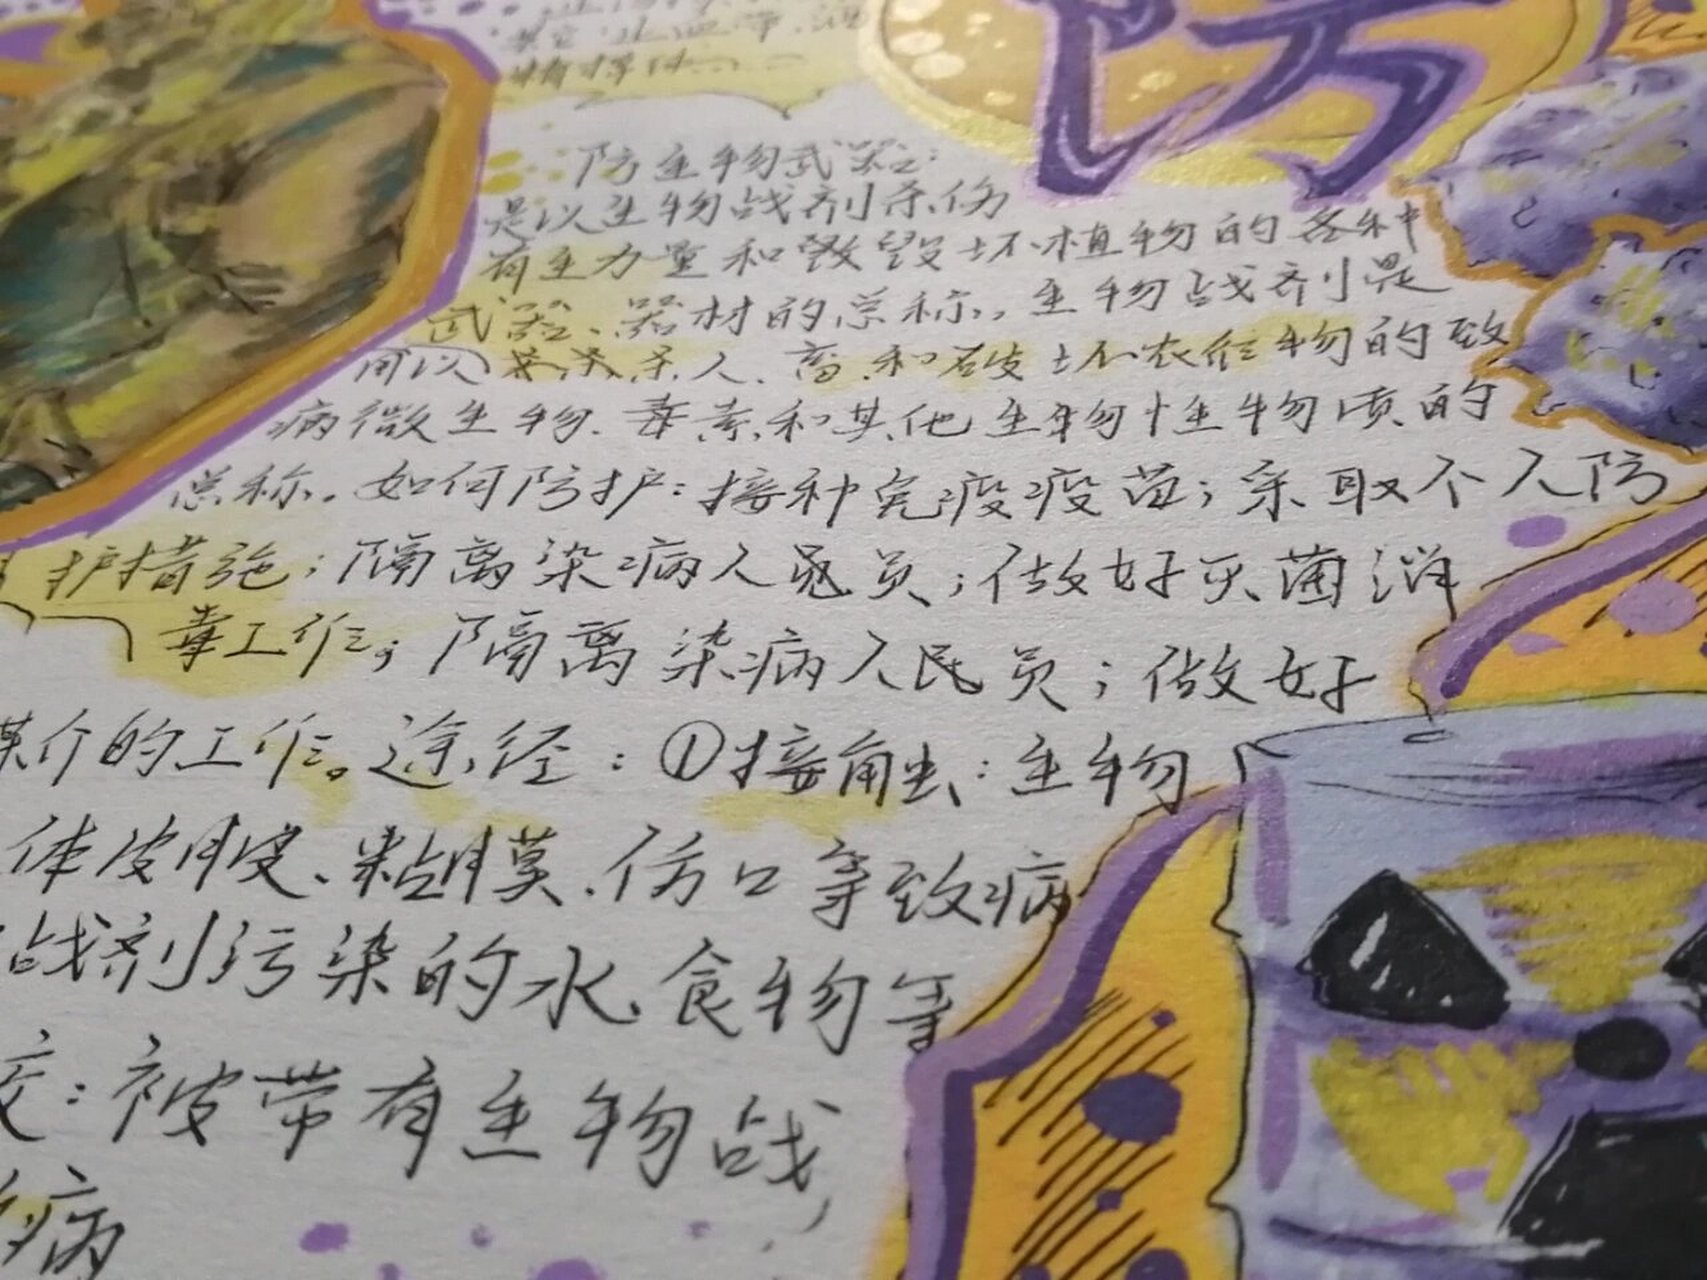 防
防生物武器:
是以生物战剂杀伤
有生力量和毁坏植物的各种
武器、器材的总称,生物战剂是
用以杀人、畜和破坏农作物的致
病微生物、毒素和其他生物性物质的
总称。如何防护:接种免疫疫苗;采取个人防
护措施;隔离染病人员;做好灭菌消
毒工作;隔离染病人民员;做好
媒介的工作。途经:①接触:生物
体皮肤、粘膜、伤口等致病
战剂污染的水、食物等
:被带有生物战
病